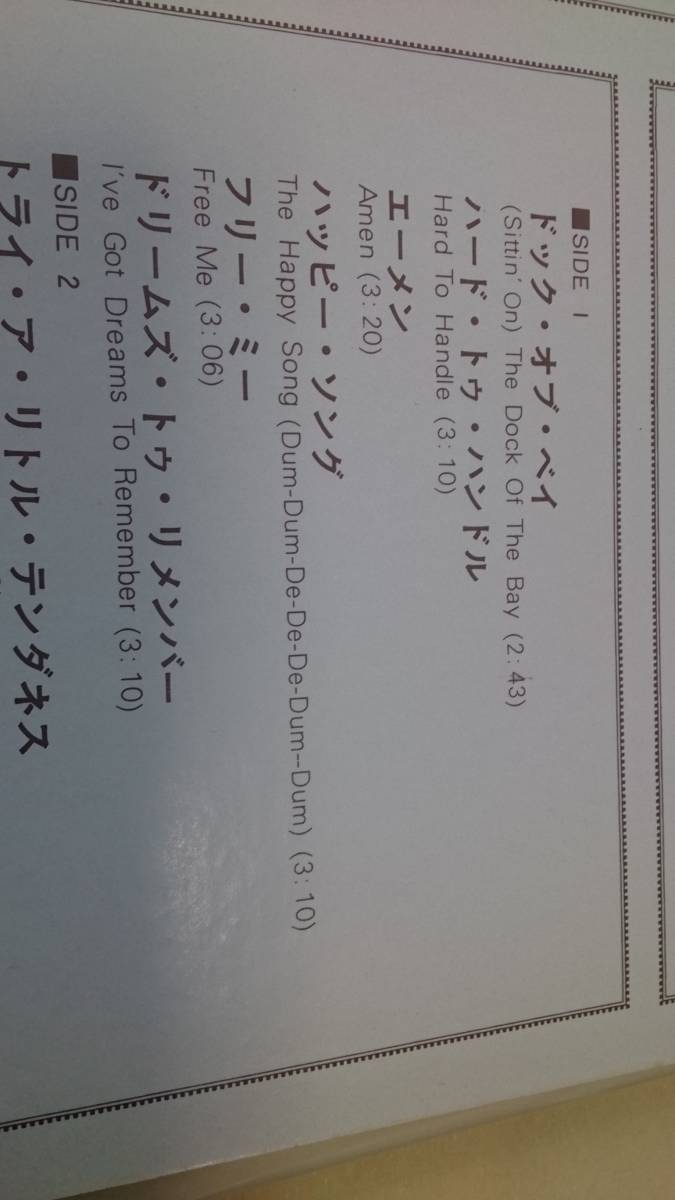 ■SIDE 1
ドック・オブ・ベイ
(Sittin' On) The Dock Of The Bay (2:43)
ハード・トゥ・ハンドル
Hard To Handle (3:10)
エーメン
Amen (3:20)
ハッピー・ソング
The Happy Song (Dum-Dum-De-De-De-Dum--Dum) (3:10)
フリー・ミー
Free Me (3:06)
ドリームズ・トゥ・リメンバー
I've Got Dreams To Remember (3:10)
■SIDE 2
トライ・ア・リトル・テンダネス